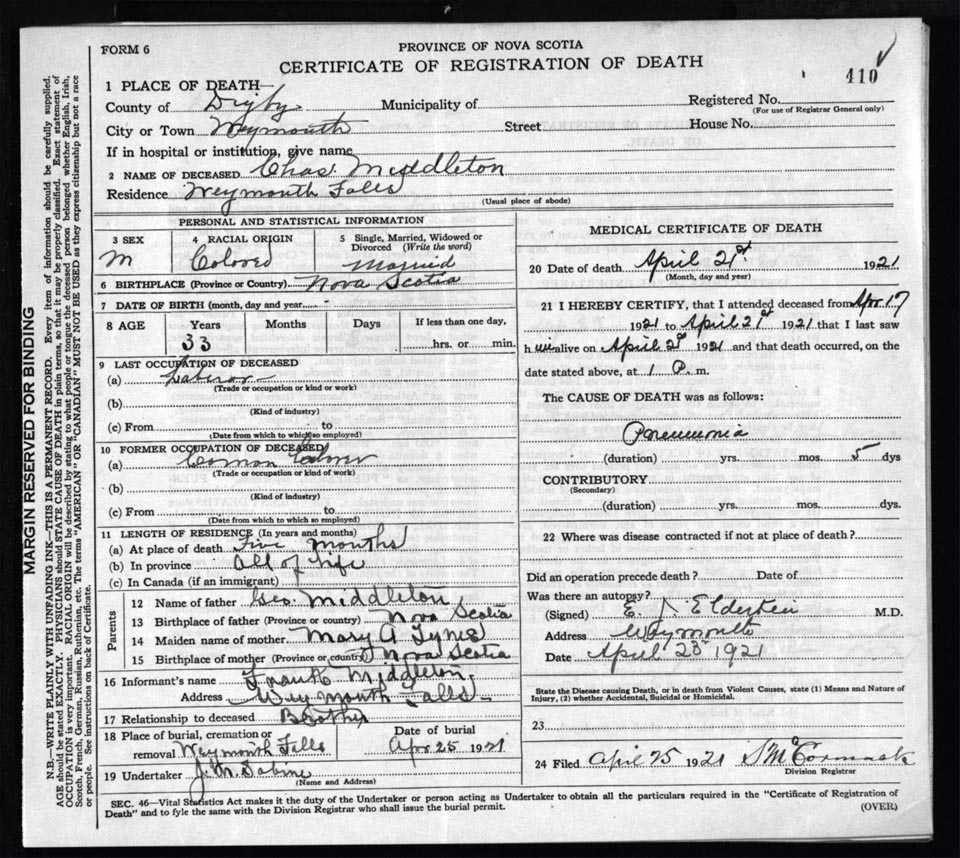 FORM 6
PROVINCE OF NOVA SCOTIA
CERTIFICATE OF REGISTRATION OF DEATH
410
1 PLACE OF DEATH—
County of Digby Municipality of
Registered No.
(For use of Registrar General only)
City or Town Weymouth Street House No.
If in hospital or institution, give name
2 NAME OF DECEASED Chas. Middleton
Residence Weymouth Falls
(Usual place of abode)
PERSONAL AND STATISTICAL INFORMATION
3 SEX 4 RACIAL ORIGIN 5 Single, Married, Widowed or Divorced (Write the word)
M Colored Married
6 BIRTHPLACE (Province or Country) Nova Scotia
7 DATE OF BIRTH (month, day and year
8 AGE Years Months Days If less than one day,
33 hrs. or min.
9 LAST OCCUPATION OF DECEASED
(a) Laborer
(Trade or occupation or kind or work)
(b)
(Kind of industry)
(c) From to
(Date from which to which so employed)
10 FORMER OCCUPATION OF DECEASED
(a) Common
(Trade or occupation or kind of work)
(b)
(Kind of industry)
(c) From to
(Date from which to which so employed)
11 LENGTH OF RESIDENCE (In years and months)
(a) At place of death Five months
(b) In province All of life
(c) In Canada (if an immigrant)
Parents
12 Name of father Geo Middleton
13 Birthplace of father (Province or country) Nova Scotia
14 Maiden name of mother Mary A Tynes
15 Birthplace of mother (Province or country) Nova Scotia
16 Informant's name Frank Middleton
Address Weymouth Falls
17 Relationship to deceased Brother
18 Place of burial, cremation or removal Weymouth Falls
Date of burial Apr 25 1921
19 Undertaker J. M. Sabine
(Name and Address)
MEDICAL CERTIFICATE OF DEATH
20 Date of death April 21st 1921
(Month, day and year)
21 I HEREBY CERTIFY, that I attended deceased from Apr 17
1921 to April 21st 1921 that I last saw
h im alive on April 1921 and that death occurred, on the
date stated above, at 1 P. m.
The CAUSE OF DEATH was as follows:
Pneumonia
(duration) yrs. mos. 5 dys
CONTRIBUTORY
(Secondary)
(duration) yrs. mos. dys.
22 Where was disease contracted if not at place of death?
Did an operation precede death? Date of
Was there an autopsy?
(Signed) E. M.D.
Address Weymouth
Date April 23 1921
State the Disease causing Death, or in death from Violent Causes, state (1) Means and Nature of
Injury, (2) whether Accidental, Suicidal or Homicidal.
23
24 Filed April 25 1921 McCormack
Division Registrar
SEC. 46—Vital Statistics Act makes it the duty of the Undertaker or person acting as Undertaker to obtain all the particulars required in the "Certificate of Registration of
Death" and to fyle the same with the Division Registrar who shall issue the burial permit.
(OVER)
MARGIN RESERVED FOR BINDING
N.B.—WRITE PLAINLY WITH UNFADING INK—THIS IS A PERMANENT RECORD. Every item of information should be carefully supplied.
AGE should be stated EXACTLY. PHYSICIANS should STATE CAUSE OF DEATH in plain terms, so that it may be properly classified. Exact statement of
OCCUPATION is very important. RACIAL ORIGIN will be described by stating to what people or tongue the deceased person belonged whether English, Irish,
Scotch, French, German, Russian, Ruthenian, etc. The terms "AMERICAN" OR "CANADIAN" MUST NOT BE USED as they express citizenship but not a race
or people. See instructions on back of Certificate.